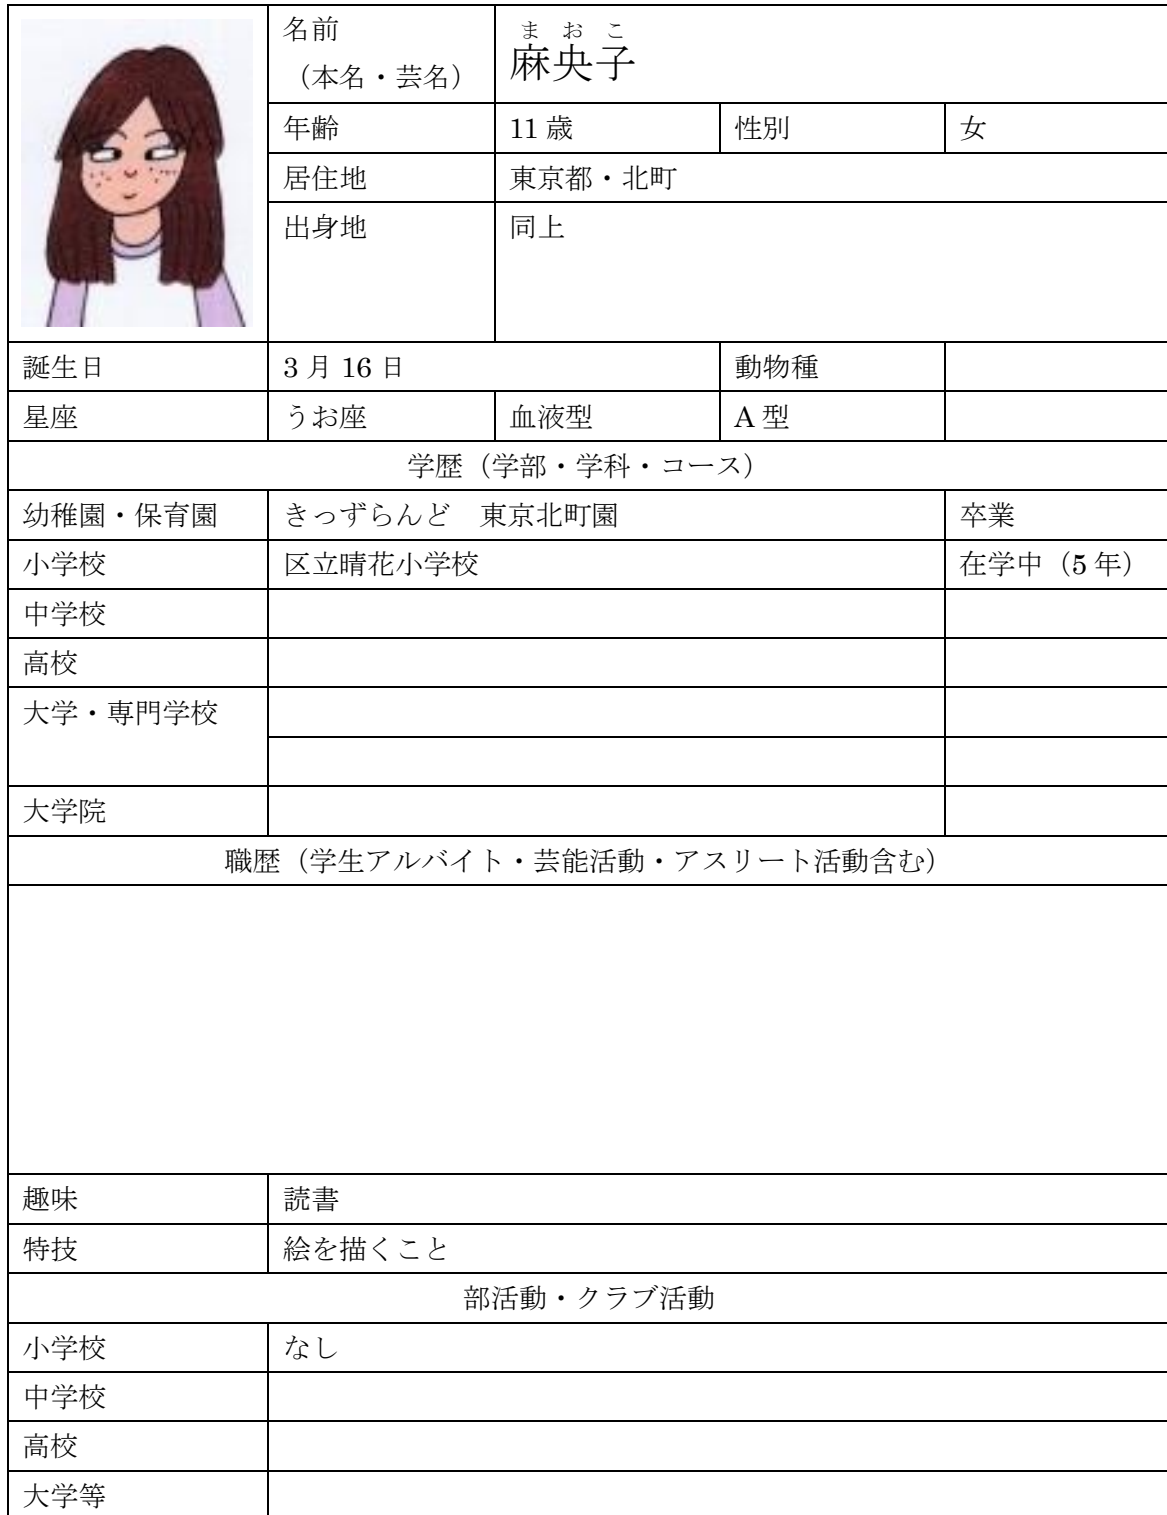 名前
（本名・芸名）
まおこ
麻央子
年齢 11歳 性別 女
居住地 東京都・北町
出身地 同上
誕生日 3月16日 動物種
星座 うお座 血液型 A型
学歴（学部・学科・コース）
幼稚園・保育園 きっずらんど　東京北町園 卒業
小学校 区立晴花小学校 在学中（5年）
中学校
高校
大学・専門学校
大学院
職歴（学生アルバイト・芸能活動・アスリート活動含む）
趣味 読書
特技 絵を描くこと
部活動・クラブ活動
小学校 なし
中学校
高校
大学等